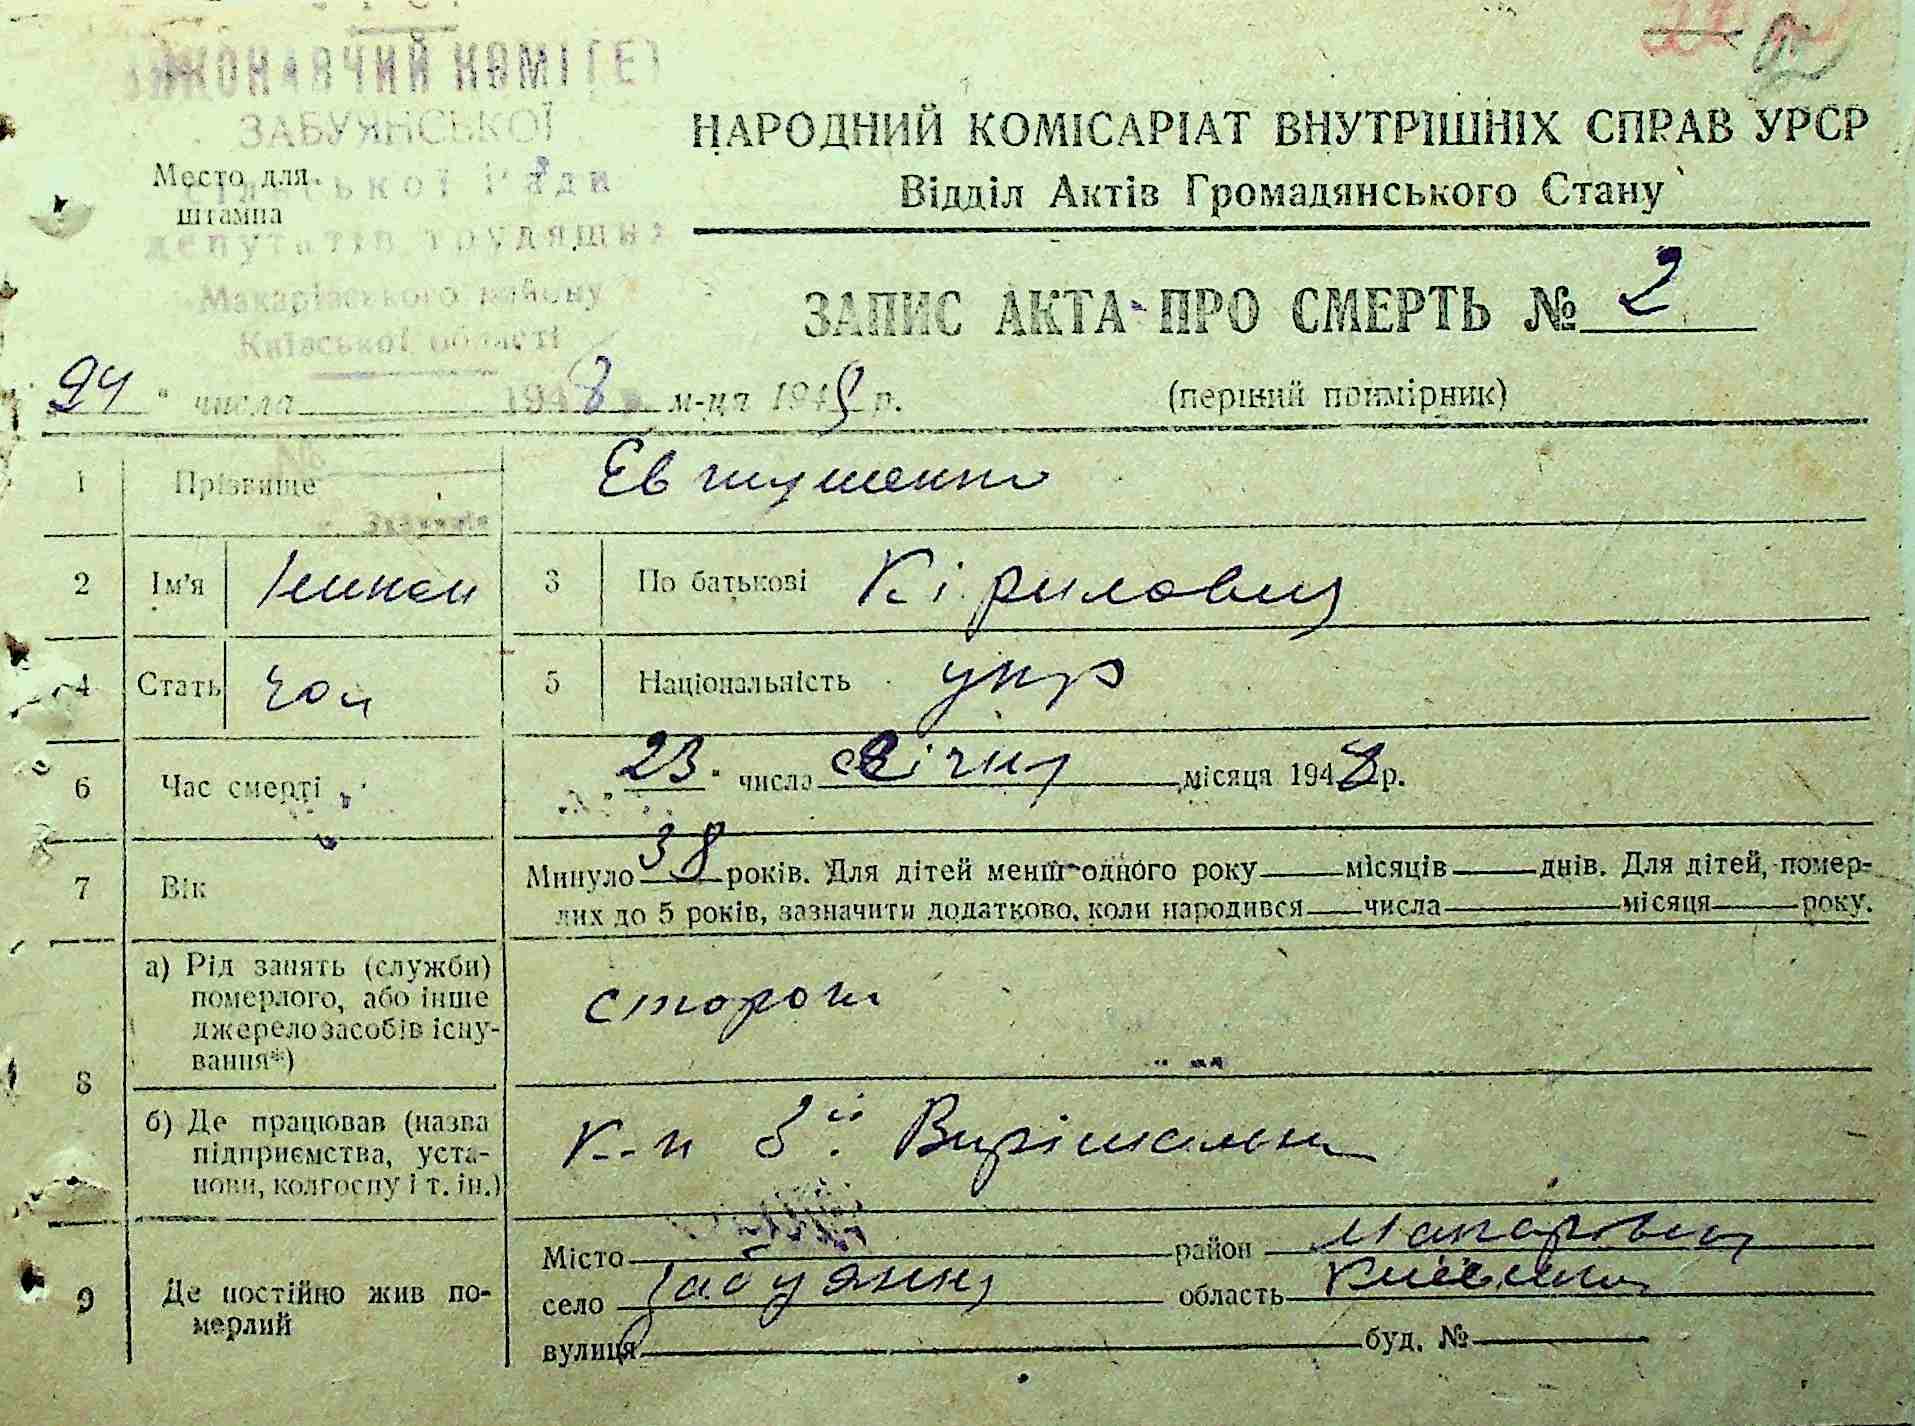 ВИКОНАВЧИЙ КОМІТЕТ
ЗАБУЯНСЬКОЇ
сільської Ради
депутатів трудящих
Макарівського району
Київської області
Место для
штампа
НАРОДНИЙ КОМІСАРІАТ ВНУТРІШНІХ СПРАВ УРСР
Відділ Актів Громадянського Стану
ЗАПИС АКТА ПРО СМЕРТЬ № 2
24 " числа 1948 м-ця 1948 р.
(перший примірник)
1 Прізвище Євтушенко
2 Ім'я 3 По батькові Кірилович
4 Стать чол 5 Національність укр
6 Час смерті 23 " числа січня місяця 1948 р.
7 Вік Минуло 38 років. Для дітей менш одного року місяців днів. Для дітей, помер-
лих до 5 років, зазначити додатково, коли народився числа місяця року.
8 а) Рід занять (служби)
померлого, або інше
джерело засобів існу-
вання*)
сторож
б) Де працював (назва
підприємства, уста-
нови, колгоспу і т. ін.)
К-п 3й Вирішальн
9 Де постійно жив по-
мерлий
Місто район Макарівськ
село Забуяння область Київська
вулиця буд. №